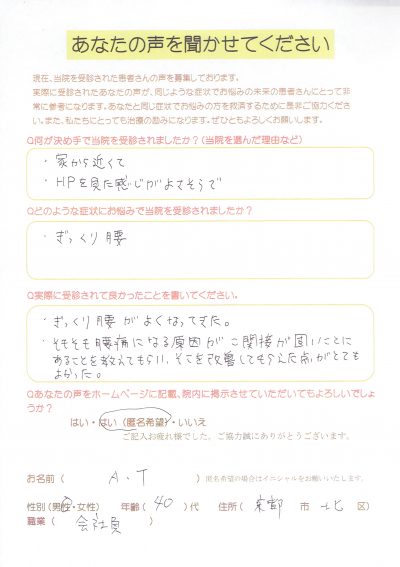 あなたの声を聞かせてください
現在、当院を受診された患者さんの声を募集しております。
実際に受診されたあなたの声が、同じような症状でお悩みの未来の患者さんにとって非
常に参考になります。あなたと同じ症状でお悩みの方を救済するために是非ご協力くださ
い。また、私たちにとっても治療の励みになります。ぜひともよろしくお願いします。
Q何が決め手で当院を受診されましたか？(当院を選んだ理由など)
・家から近くて
・HPを見た感じがよさそうで
Qどのような症状にお悩みで当院を受診されましたか？
・ぎっくり腰
Q実際に受診されて良かったことを書いてください。
・ぎっくり腰がよくなってきた。
・そもそも腰痛になる原因がこ関接が固いことに
あることを教えてもらい、そこを改善してもらえた点がとても
よかった。
Qあなたの声をホームページに記載、院内に掲示させていただいてもよろしいでしょ
うか？
はい・はい（匿名希望）・いいえ
ご記入お疲れ様でした。ご協力誠にありがとうございます。
お名前（ A.T ）匿名希望の場合はイニシャルをお願いいたします。
性別（男性・女性） 年齢（40）代 住所（京都 市 北 区）
職業（ 会社員 ）